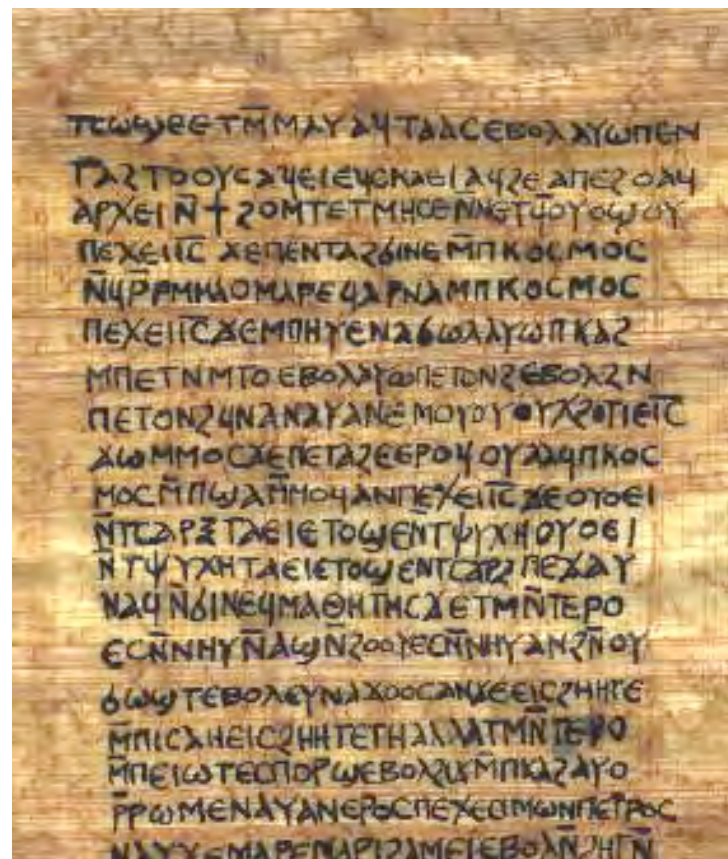 ⲧⲥⲱϣⲉⲉⲧⲙ̄ⲙⲁⲩⲁϥⲧⲁⲁⲥⲉⲃⲟⲗⲁⲩⲱⲡⲉⲛ
ⲧⲁϩⲧⲟⲟⲩⲥⲁϥⲉⲓⲉϥⲥⲕⲁⲉⲓⲁϥϩⲉⲁⲡⲉϩⲟⲁϥ
ⲁⲣⲭⲉⲓⲛ̄ϯϩⲟⲙⲧⲉⲧⲙⲏⲥⲉⲛ̄ⲛⲉⲧϥⲟⲩⲟϣⲟⲩ
ⲡⲉϫⲉⲓⲓⲥ̅ϫⲉⲡⲉⲛⲧⲁϩϭⲓⲛⲉⲙ̄ⲡⲕⲟⲥⲙⲟⲥ
ⲛ̄ϥⲣ̄ⲣⲙⲙⲁⲟⲙⲁⲣⲉϥⲁⲣⲛⲁⲙⲡⲕⲟⲥⲙⲟⲥ
ⲡⲉϫⲉⲓⲓⲥ̅ϫⲉⲙⲡⲏⲩⲉⲛⲁϭⲱⲗⲁⲩⲱⲡⲕⲁϩ
ⲙⲡⲉⲧⲛⲙⲧⲟⲉⲃⲟⲗⲁⲩⲱⲡⲉⲧⲟⲛϩⲉⲃⲟⲗϩⲛ
ⲡⲉⲧⲟⲛϩϥⲛⲁⲛⲁⲩⲁⲛⲉⲙⲟⲩⲟⲩⲟⲩⲭϩⲟⲧⲓⲉⲓⲥ̅
ϫⲱⲙⲙⲟⲥϫⲉⲡⲉⲧⲁϩⲉⲉⲣⲟϥⲟⲩⲁⲁϥⲡⲕⲟⲥ
ⲙⲟⲥⲙ̄ⲡϣⲁⲙ̄ⲙⲟϥⲁⲛⲡⲉϫⲉⲓⲓⲥ̅ϫⲉⲟⲩⲟⲉⲓ
ⲛ̄ⲧⲥⲁⲣⲝⲧⲁⲉⲓⲉⲧⲟϣⲉⲛ̄ⲧⲯⲩⲭⲏⲟⲩⲟⲉⲓ
ⲛ̄ⲧⲯⲩⲭⲏⲧⲁⲉⲓⲉⲧⲟϣⲉⲛⲧⲥⲁⲣⲝⲡⲉϫⲁⲩ
ⲛⲁϥⲛ̄ϭⲓⲛⲉϥⲙⲁⲑⲏⲧⲏⲥϫⲉⲧⲙⲛ̄ⲧⲉⲣⲟ
ⲉⲥⲛ̄ⲛⲏⲩⲛ̄ⲁϣⲛ̄ϩⲟⲟⲩⲉⲥⲛ̄ⲛⲏⲩⲁⲛϩⲛ̄ⲟⲩ
ϭⲱϣⲧⲉⲃⲟⲗⲉⲩⲛⲁϫⲟⲟⲥⲁⲛϫⲉⲉⲓⲥϩⲏⲏⲧⲉ
ⲙ̄ⲡⲓⲥⲁⲏⲉⲓⲥϩⲏⲏⲧⲉⲧⲏⲁⲗⲗⲁⲧⲙⲛ̄ⲧⲉⲣⲟ
ⲙ̄ⲡⲉⲓⲱⲧⲉⲥⲡⲟⲣϣⲉⲃⲟⲗϩⲓϫⲙ̄ⲡⲕⲁϩⲁⲩⲟ
ⲣ̄ⲣⲱⲙⲉⲛⲁⲩⲁⲛⲉⲣⲟⲥⲡⲉϫⲉⲥⲓⲙⲱⲛⲡⲉⲧⲣⲟⲥ
ⲛⲁⲩϫⲉⲙⲁⲣⲉ